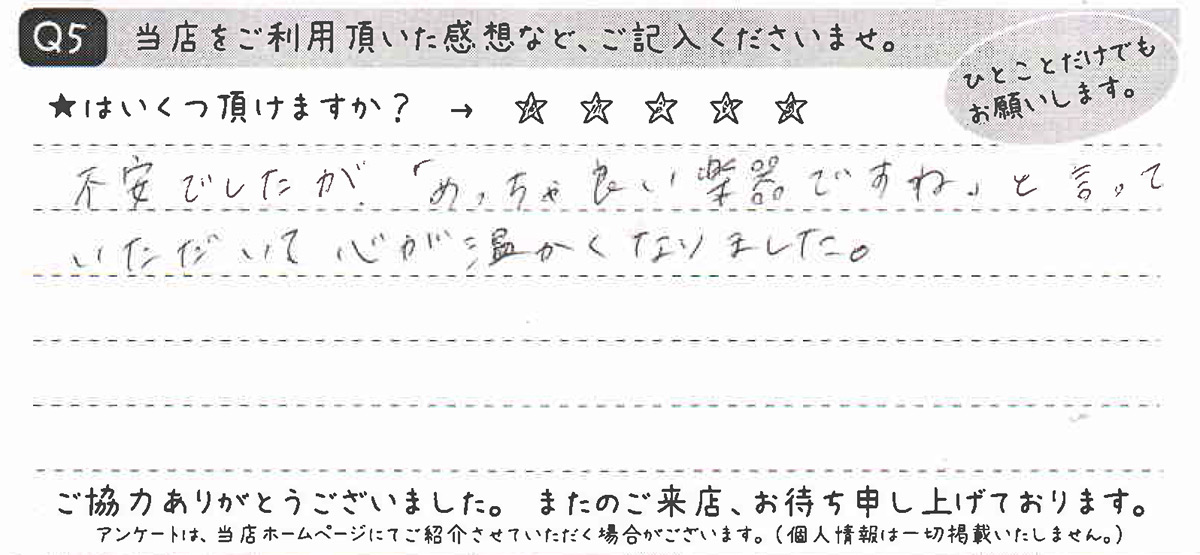 Q5 当店をご利用頂いた感想など、ご記入くださいませ。
ひとことだけでも
お願いします。
★はいくつ頂けますか？ → ☆ ☆ ☆ ☆ ☆
不安でしたが、「めっちゃ良い楽器ですね」と言って
いただいて心が温かくなりました。
ご協力ありがとうございました。 またのご来店、お待ち申し上げております。
アンケートは、当店ホームページにてご紹介させていただく場合がございます。（個人情報は一切掲載いたしません。）